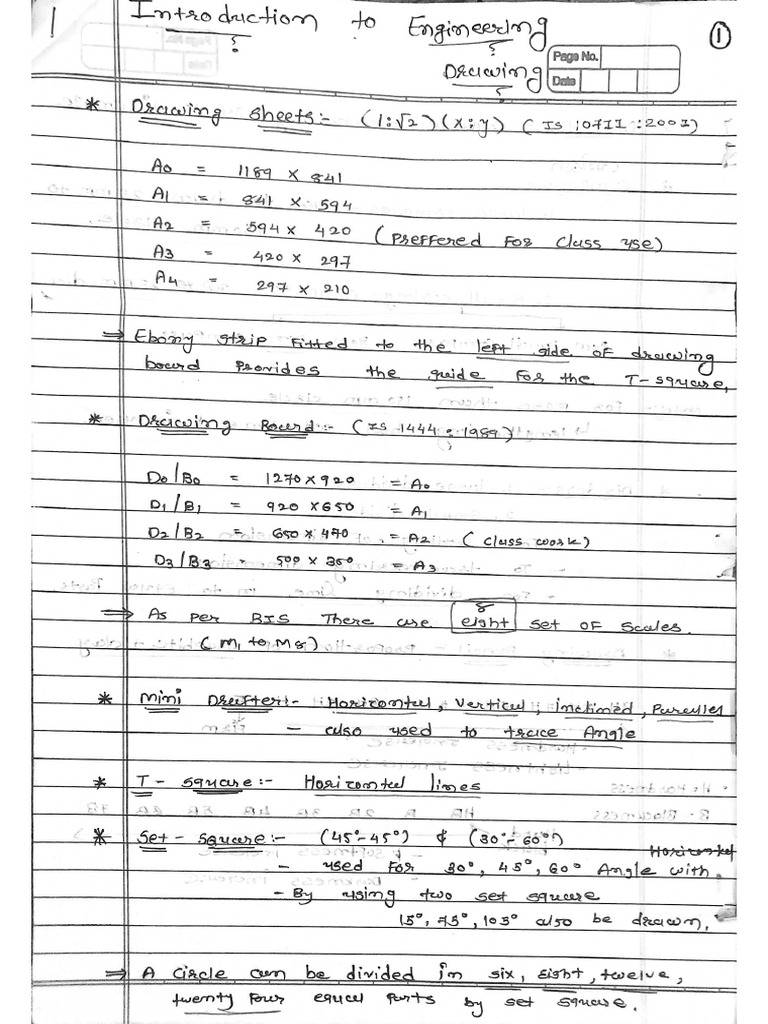 1
Introduction to Engineering
Drawing
①
Page No.
Date
* Drawing sheets:- (1:√2) (x:y) (IS:0711:2001)
A0 = 1189 × 841
A1 = 841 × 594
A2 = 594 × 420 (Preffered For Class use)
A3 = 420 × 297
A4 = 297 × 210
⇒ Ebony strip Fitted to the left side of drawing
board provides the guide For the T-square,
* Drawing Board:- (IS 1444:1989)
D0/B0 = 1270×920 = A0
D1/B1 = 920×650 = A1
D2/B2 = 650×470 = A2 (class work)
D3/B3 = 500×350 = A3
⇒ As per BIS There are eight set of scales.
8
(M1 to M8)
* Mini Drafter:- Horizontal, Vertical, inclined, Parellel
- also used to trace Angle
* T-square:- Horizontal lines
* Set-square:- (45°-45°) & (30°-60°)
Horizontal
- used For 30°, 45°, 60° Angle with.
- By using two set square
15°, 75°, 105° also be drawn.
⇒ A circle can be divided in six, eight, twelve,
twenty four equal parts by set square.